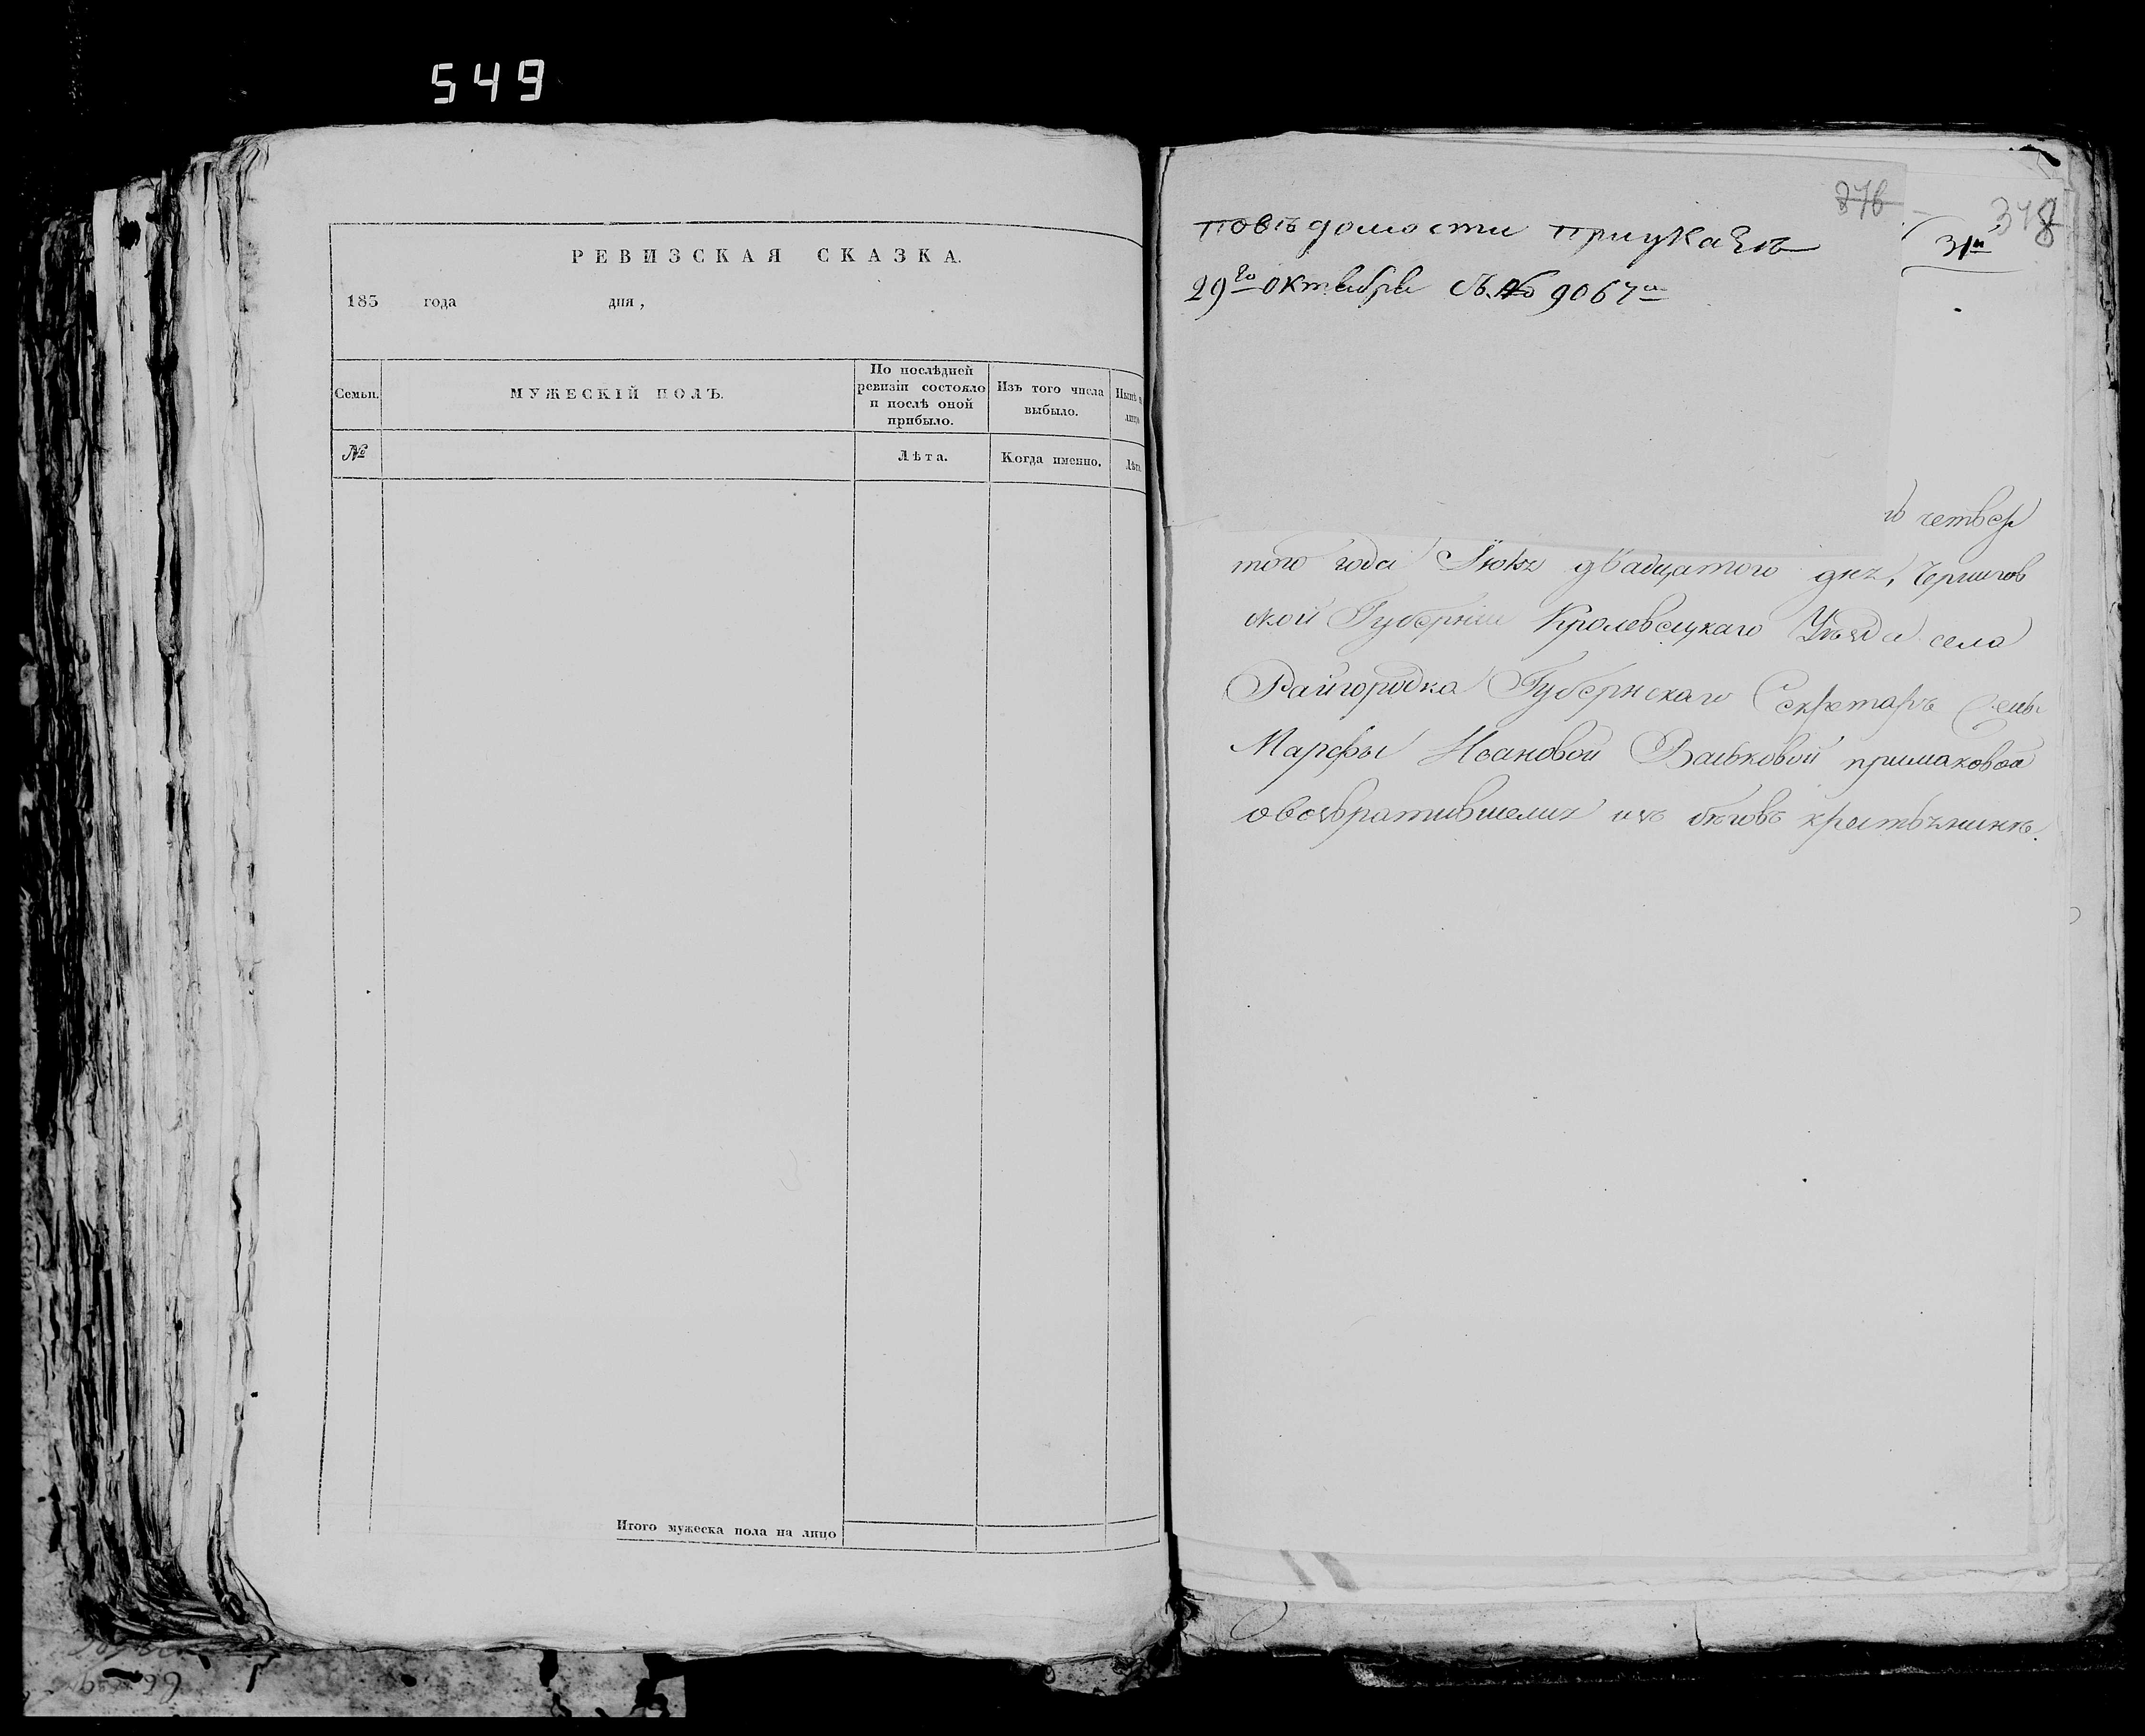 549
РЕВИЗСКАЯ СКАЗКА.
185 года дня,
Семьи.
МУЖЕСКІЙ ПОЛЪ.
По послѣдней
ревизіи состояло
и послѣ оной
прибыло.
Изъ того числа
выбыло.
Нынѣ н
лицо
№
Лѣта.
Когда именно.
Лѣта
Итого мужеска пола на лицо
376
378
31й
повѣдомости приуказѣ
29го октября за № 9067м
ъ четвер
того года Іюля двадцатого дня, Чернигов
ской Губерніи Кролевецкаго Уѣзда села
Райгородка Губернскаго Секретаря
Марфы Ивановой Вальковой примаковой
овозвратившемся изъ бѣговъ крестьянинѣ.